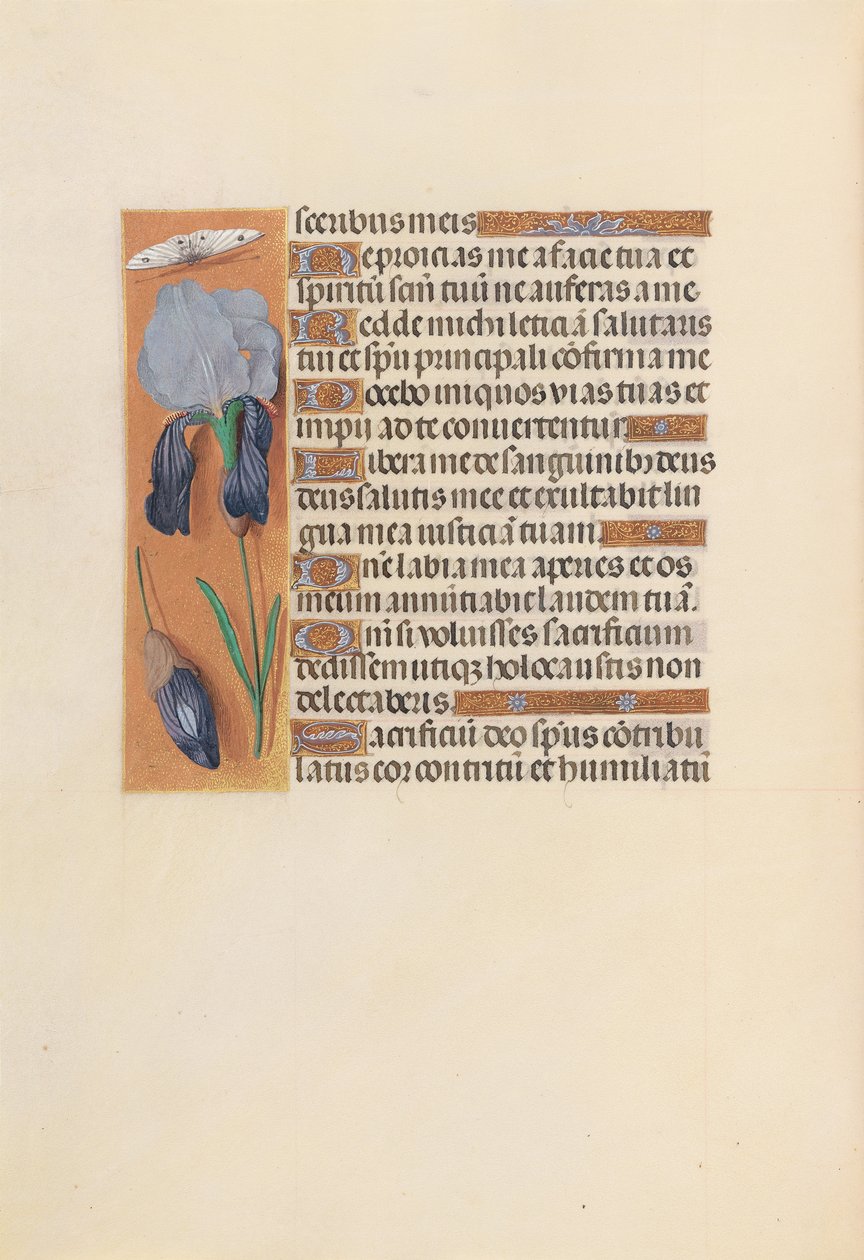 sceribus meis
Ne proicias me a facie tua et
spiritū scm̄ tuū ne auferas a me
Redde michi leticiā salutaris
tui et sp̄u principali cōfirma me
Docebo iniquos vias tuas et
impii ad te conuertentur
Libera me de sanguinibꝫ deus
deus salutis mee et exultabit lin
gua mea iusticiā tuam.
Dn̄e labia mea aperies et os
meum annūtiabit laudem tuā.
Qm̄ si voluisses sacrificium
dedissem utiqꝫ holocaustis non
delectaberis.
Sacrificiū deo sp̄us cōtribu
latus cor contritū et humiliatū